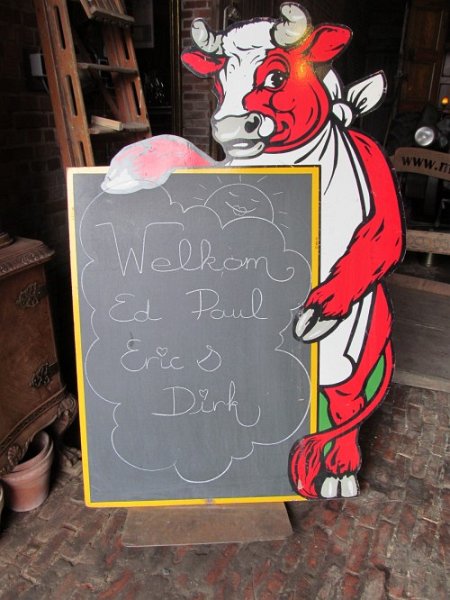 Welkom
Ed Paul
Eric S
Dirk
www.